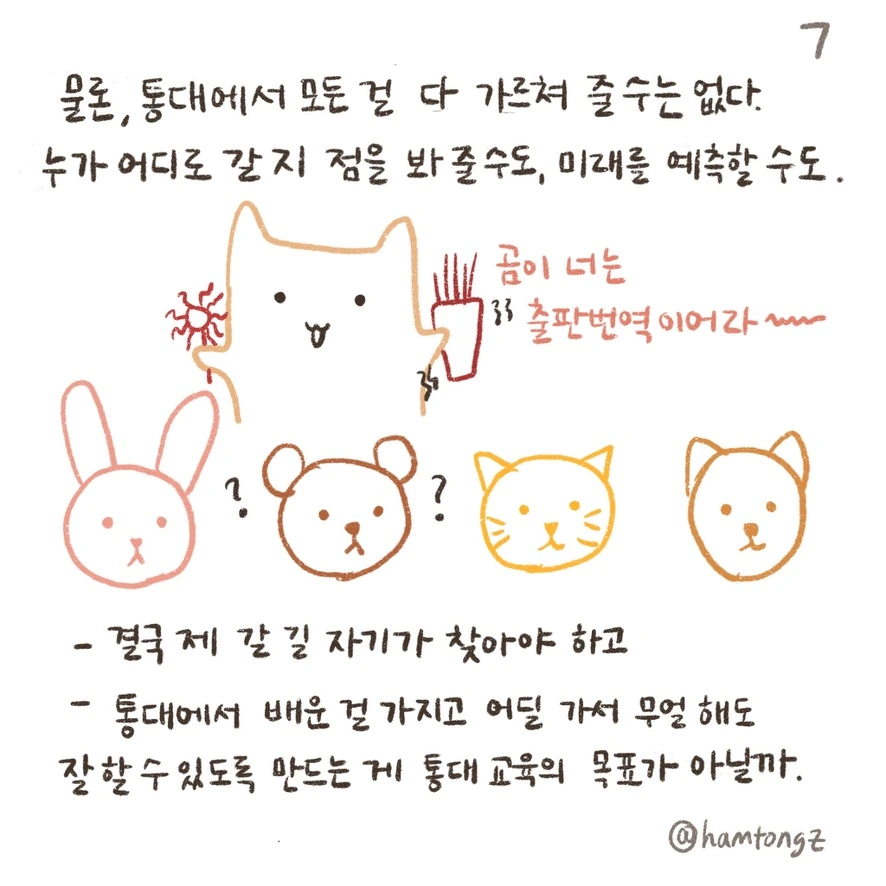 7
물론, 통대에서 모든 걸 다 가르쳐 줄 수는 없다.
누가 어디로 갈 지 점을 봐 줄 수도, 미래를 예측할 수도.
곰이 너는
출판번역이어라~~~
?
?
- 결국 제 갈 길 자기가 찾아야 하고
- 통대에서 배운 걸 가지고 어딜 가서 무얼 해도
잘 할 수 있도록 만드는 게 통대 교육의 목표가 아닐까.
@hamtongz